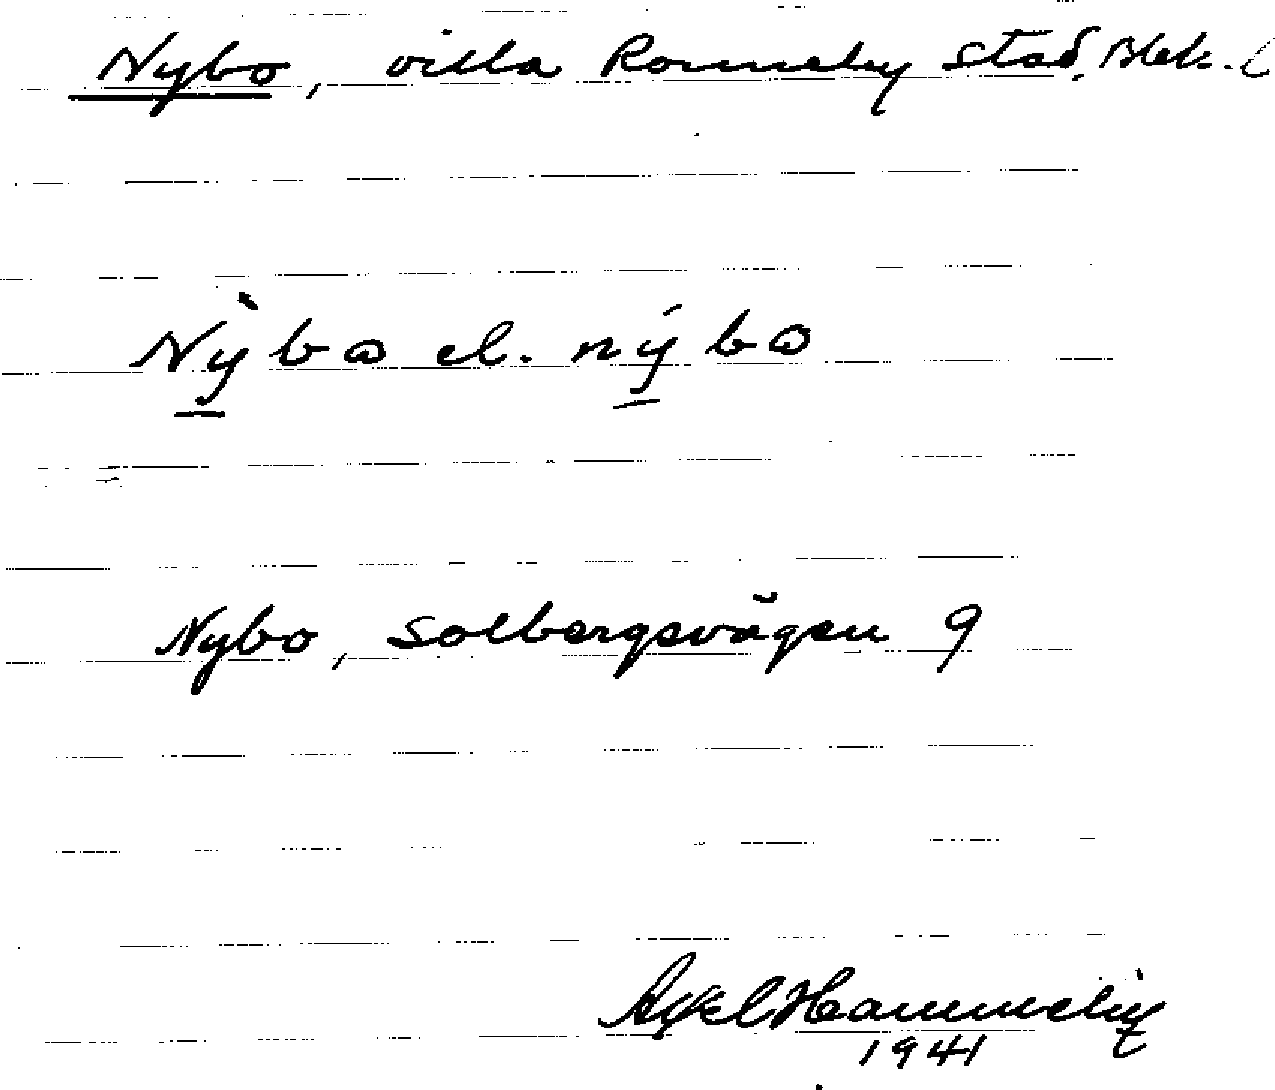 Nybo, villa Ronneby stad, Blek. l
Nỳbω el. nýbω
Nybo, Solbergsvägen 9
Axel Hammelin
1941